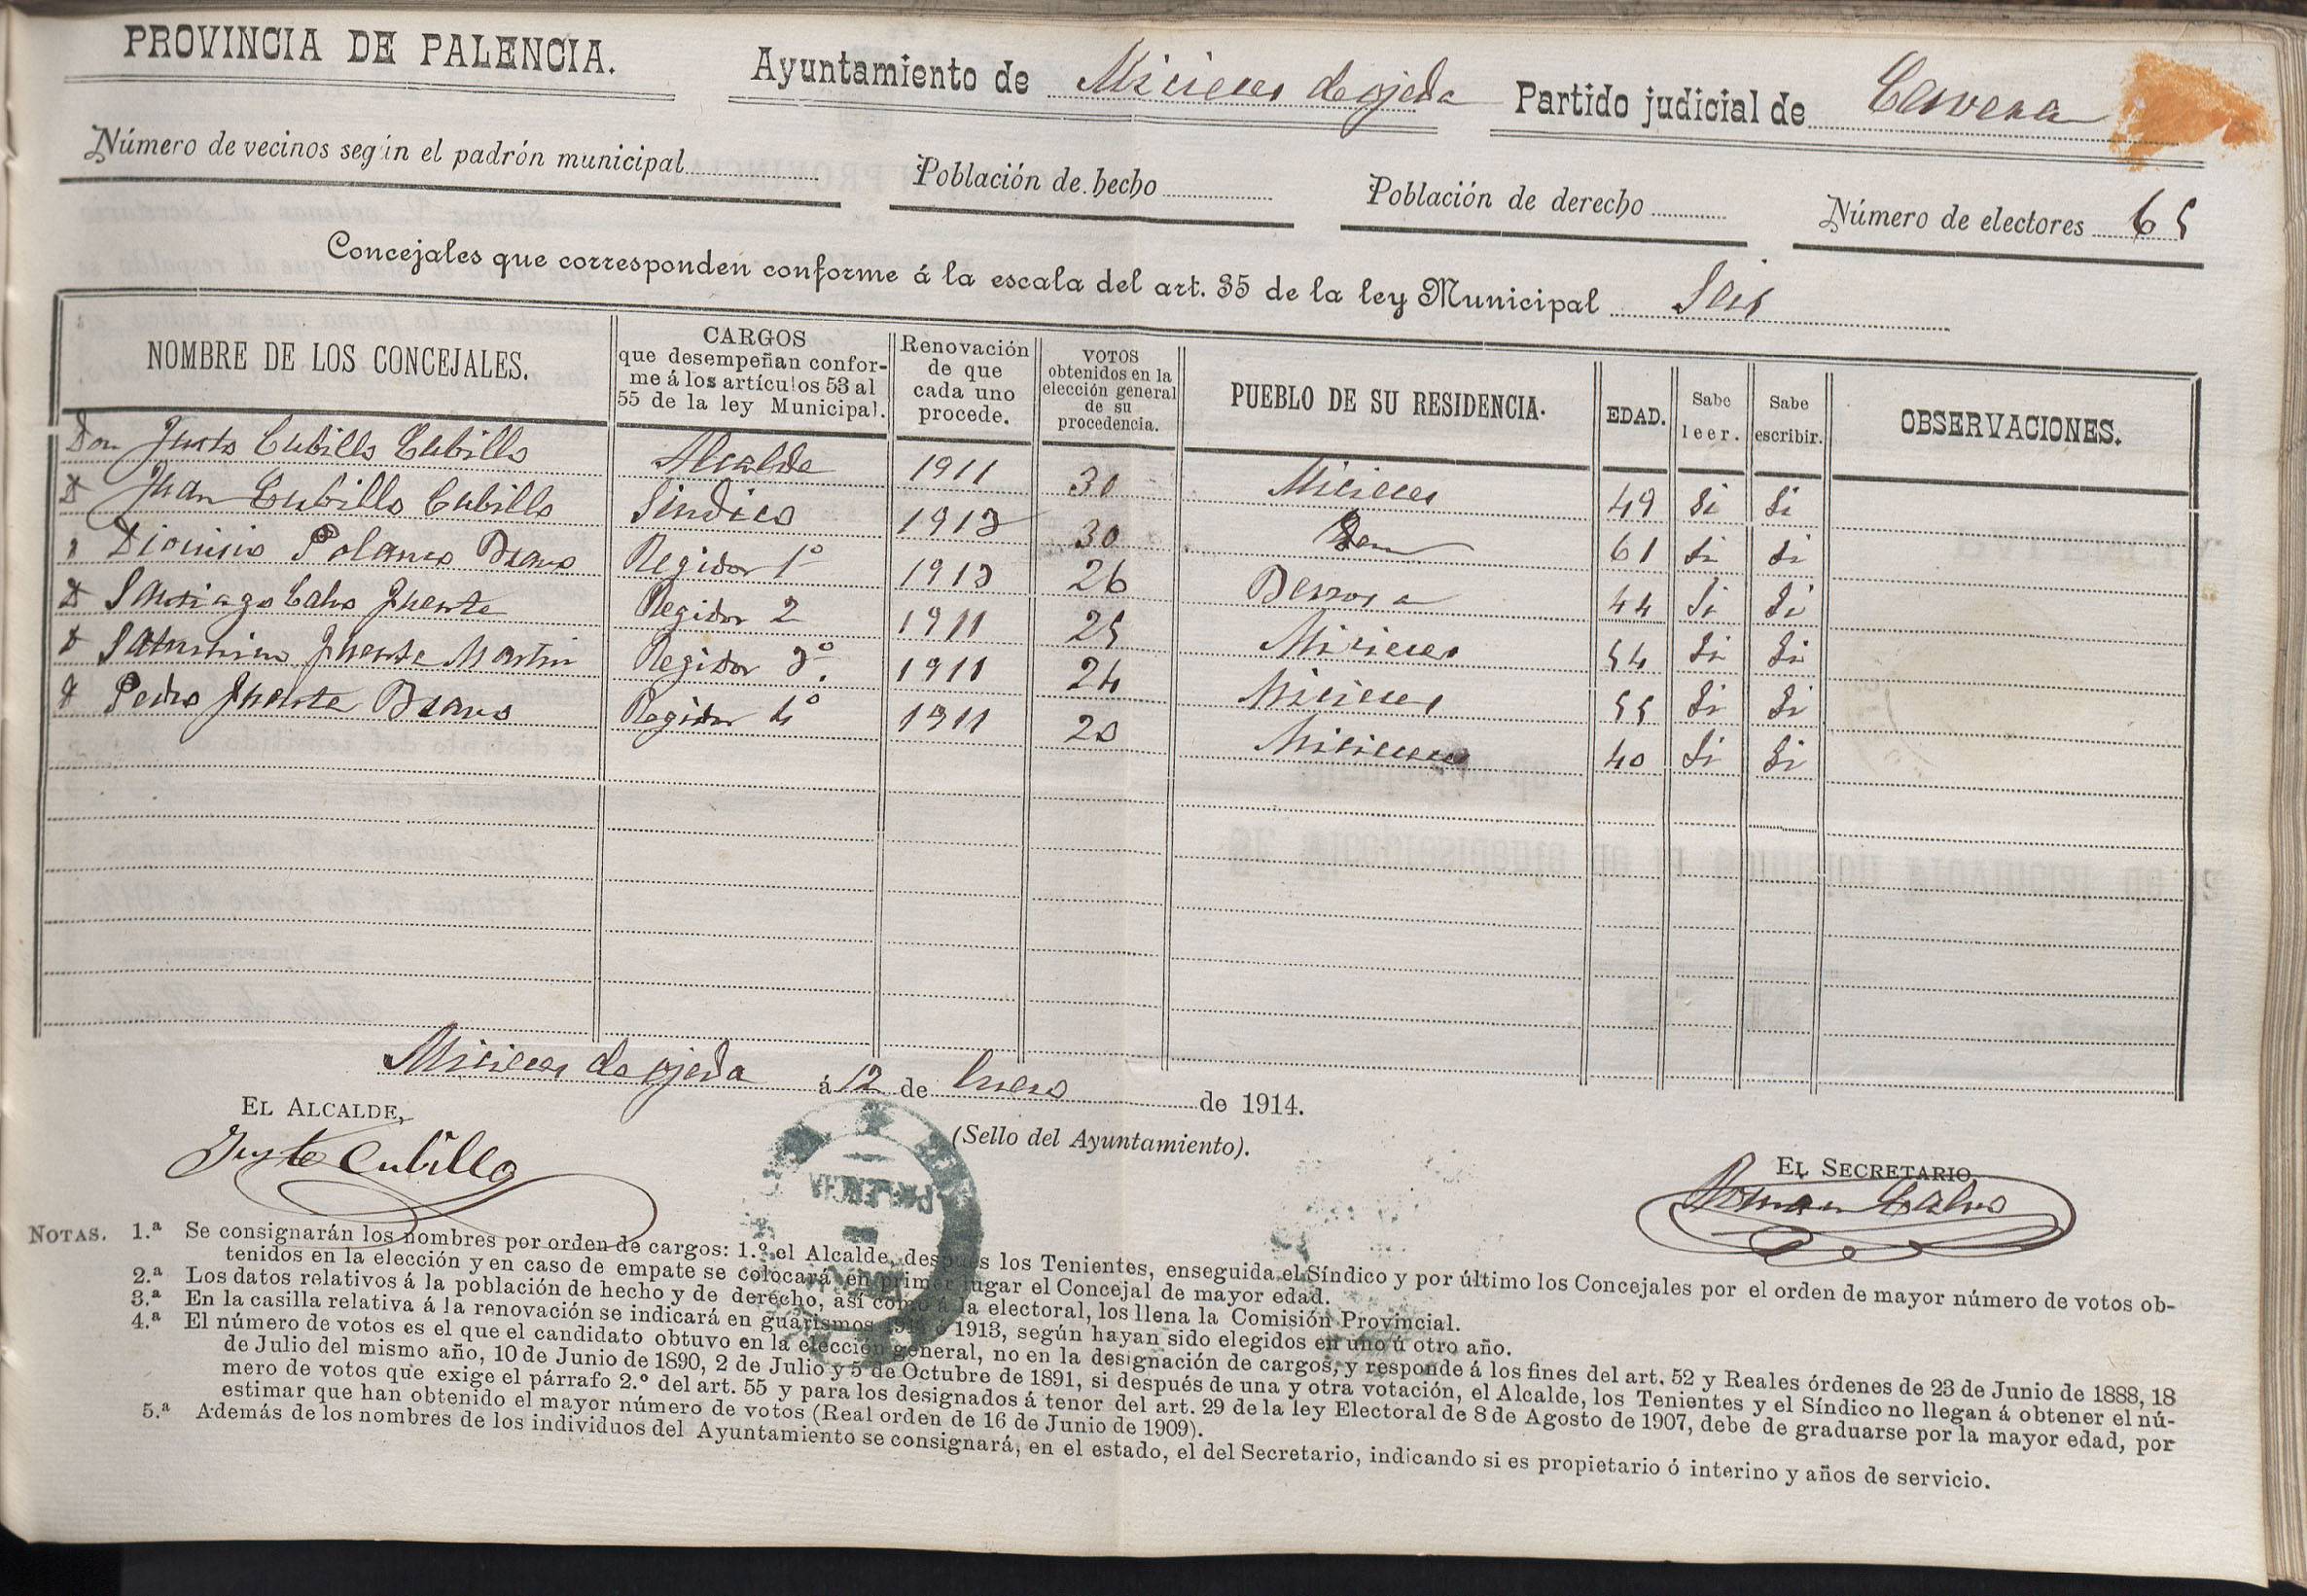 PROVINCIA DE PALENCIA. Ayuntamiento de Micieces de ojeda Partido judicial de Cervera
Número de vecinos según el padrón municipal Población de hecho Población de derecho Número de electores 65
Concejales que corresponden conforme á la escala del art. 35 de la ley Municipal Seis
NOMBRE DE LOS CONCEJALES. CARGOS que desempeñan conforme á los artículos 53 al 55 de la ley Municipal. Renovación de que cada uno procede. VOTOS obtenidos en la elección general de su procedencia. PUEBLO DE SU RESIDENCIA. EDAD. Sabe leer. Sabe escribir. OBSERVACIONES.
Don Justo Cubillo Cubillo Alcalde 1911 30 Micieces 49 Si Si
D Juan Cubillo Cubillo Sindico 1913 30 Idem 61 Si Si
" Dionisio Polanco Bravo Regidor 1º 1913 26 Berzosa 44 Si Si
D Santiago Calvo Fuente Regidor 2 1911 25 Micieces 54 Si Si
D Saturnino Fuente Martin Regidor 3º. 1911 24 Micieces 55 Si Si
D Pedro Fuente Bravo Regidor 4º 1911 20 Micieces 40 Si Si
Micieces de ojeda á 12 de Enero de 1914.
EL ALCALDE,
Justo Cubillo
(Sello del Ayuntamiento).
PALENCIA
EL SECRETARIO,
Roman Calvo
NOTAS. 1.ª Se consignarán los nombres por orden de cargos: 1.º el Alcalde, después los Tenientes, enseguida el Síndico y por último los Concejales por el orden de mayor número de votos ob-
tenidos en la elección y en caso de empate se colocará en primer lugar el Concejal de mayor edad.
2.ª Los datos relativos á la población de hecho y de derecho, así como á la electoral, los llena la Comisión Provincial.
3.ª En la casilla relativa á la renovación se indicará en guarismos 1911 ó 1913, según hayan sido elegidos en uno ú otro año.
4.ª El número de votos es el que el candidato obtuvo en la elección general, no en la designación de cargos, y responde á los fines del art. 52 y Reales órdenes de 23 de Junio de 1888, 18
de Julio del mismo año, 10 de Junio de 1890, 2 de Julio y 5 de Octubre de 1891, si después de una y otra votación, el Alcalde, los Tenientes y el Síndico no llegan á obtener el nú-
mero de votos que exige el párrafo 2.º del art. 55 y para los designados á tenor del art. 29 de la ley Electoral de 8 de Agosto de 1907, debe de graduarse por la mayor edad, por
estimar que han obtenido el mayor número de votos (Real orden de 16 de Junio de 1909).
5.ª Además de los nombres de los individuos del Ayuntamiento se consignará, en el estado, el del Secretario, indicando si es propietario ó interino y años de servicio.